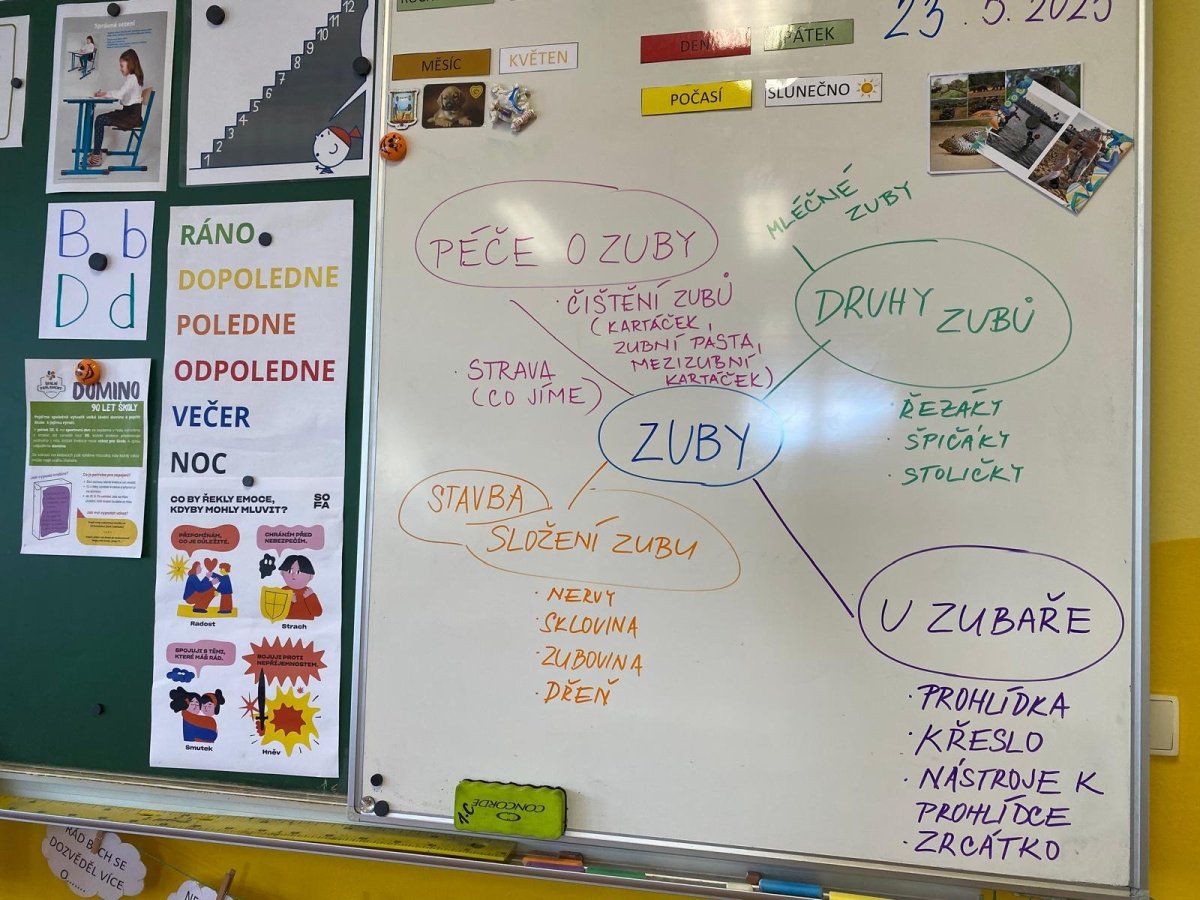 Správné sezení
1
2
3
4
5
6
7
8
9
10
11
12
B b
D d
RÁNO
DOPOLEDNE
POLEDNE
ODPOLEDNE
VEČER
NOC
DOMINO
90 LET ŠKOLY
CO BY ŘEKLY EMOCE,
KDYBY MOHLY MLUVIT?
SO
FA
PŘIPOMÍNÁM,
CO JE DŮLEŽITÉ.
CHRÁNÍM PŘED
NEBEZPEČÍM.
Radost
Strach
SPOJUJI S TĚMI,
KTERÉ MÁŠ RÁD.
BOJUJI PROTI
NEPŘÍJEMNOSTEM.
Smutek
Hněv
RÁD BYCH SE
DOZVĚDĚL VÍCE
O......
MĚSÍC
KVĚTEN
DEN
PÁTEK
23.5.2025
POČASÍ
SLUNEČNO
PÉČE O ZUBY
· ČIŠTĚNÍ ZUBŮ
(KARTÁČEK,
ZUBNÍ PASTA,
MEZIZUBNÍ
KARTÁČEK)
· STRAVA
(CO JÍME)
MLÉČNÉ
ZUBY
DRUHY ZUBŮ
· ŘEZÁKY
· ŠPIČÁKY
· STOLIČKY
ZUBY
STAVBA
SLOŽENÍ ZUBU
· NERVY
· SKLOVINA
· ZUBOVINA
· DŘEŇ
U ZUBAŘE
· PROHLÍDKA
· KŘESLO
· NÁSTROJE K
PROHLÍDCE
· ZRCÁTKO
1.C
CONCORDE